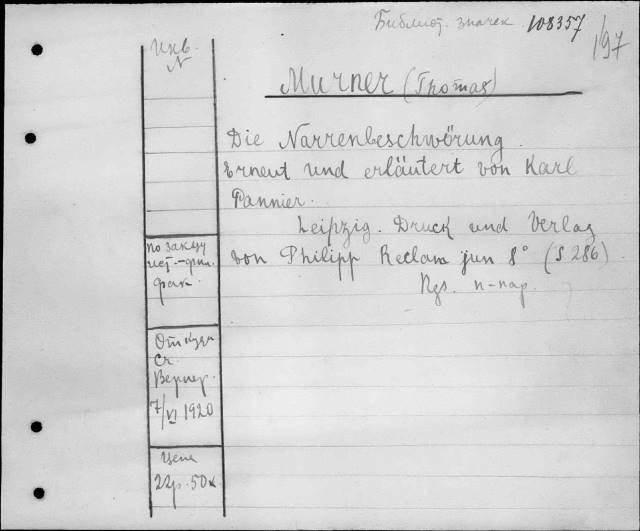 Библиот. значек 108357
197
Инв.
N
Murner (Thomas)
Die Narrenbeschwörung.
Erneut und erläutert von Karl
Pannier.
Leipzig. Druck und Verlag
von Philipp Reclam jun 8° (S 286)
п-пар.
по заказу
ист.-фил.
фак.
Откуда
Ст.
Вернер.
7/VI 1920
Цена
22р. 50к